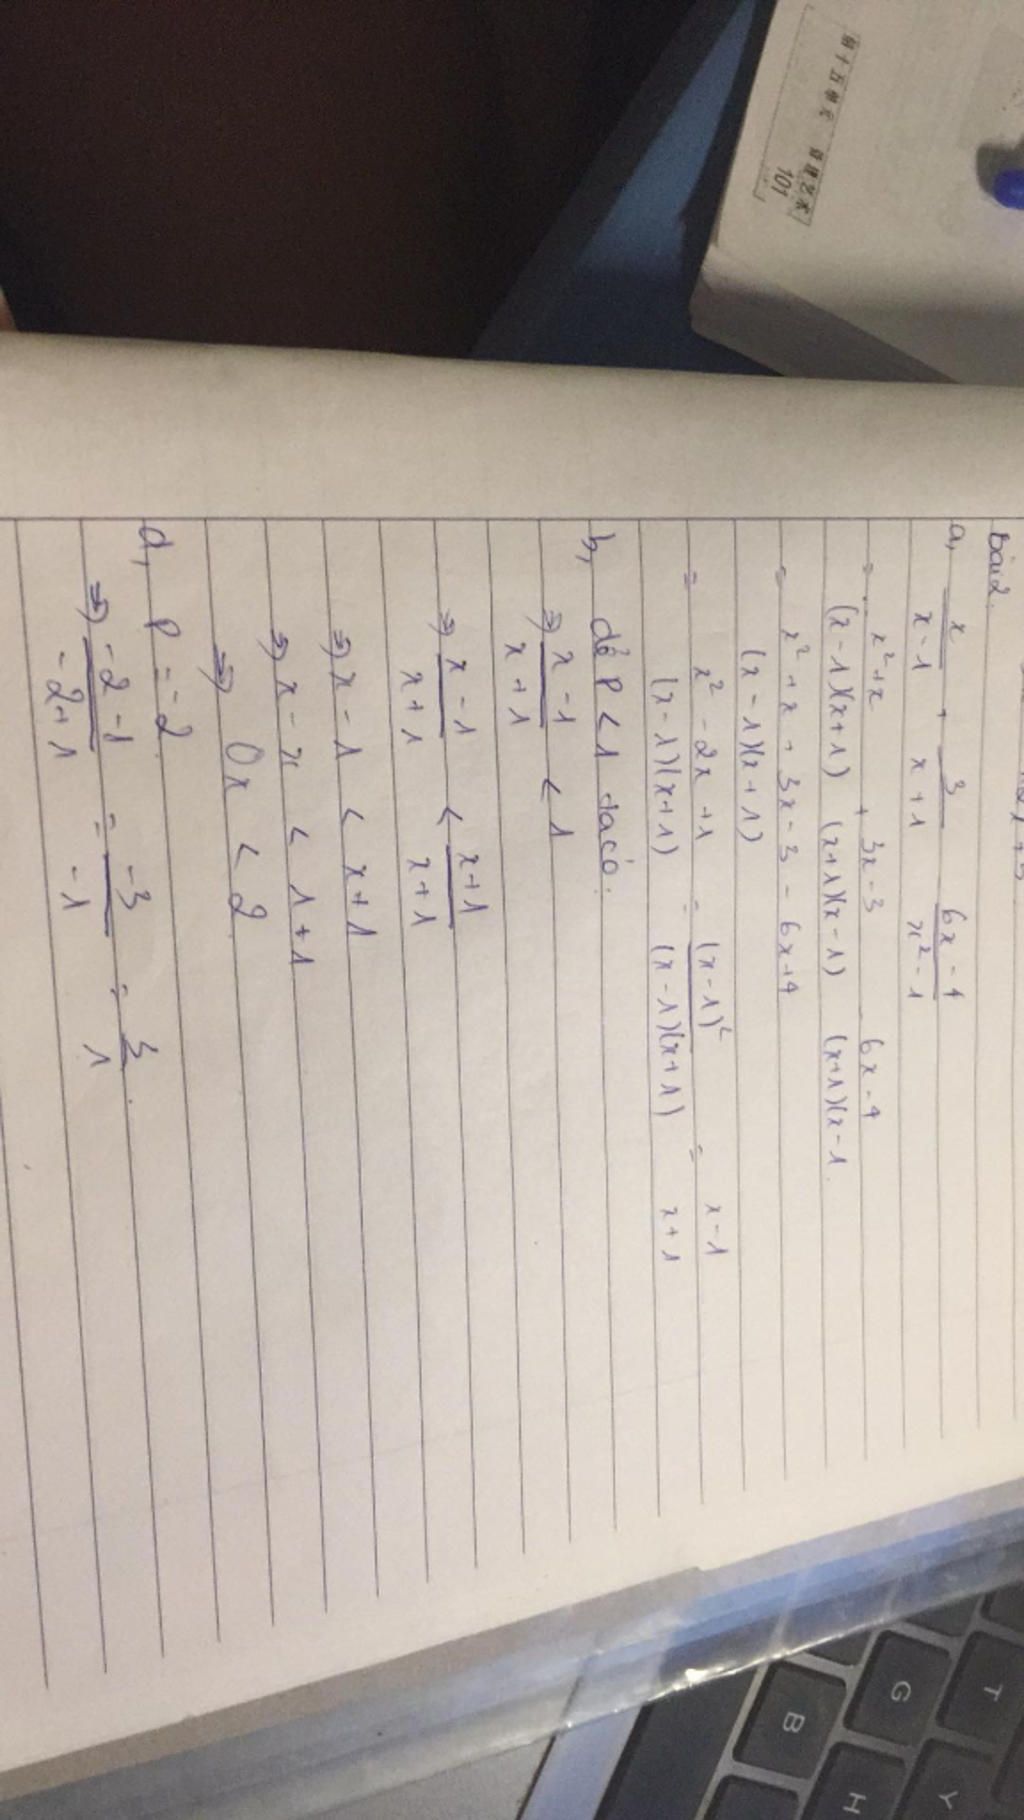 Bài 2.
a, x/(x-1) + 3/(x+1) 6x-4/(x²-1)
= x²+x/((x-1)(x+1)) + 3x-3/((x+1)(x-1)) 6x-4/((x+1)(x-1
= x²+x+3x-3-6x+4/((x-1)(x+1))
= x²-2x+1/((x-1)(x+1)) = (x-1)²/((x-1)(x+1)) = x-1/(x+1)
b, để P<1 ta có.
⇒ x-1/(x+1) < 1
⇒ x-1/(x+1) < x+1/(x+1)
⇒ x-1 < x+1
⇒ x-x < 1+1
⇒ 0x < 2
d, P=-2
⇒ -2-1/(-2+1) = -3/-1 = 3/1
第十五单元 算法艺术
101
T
G
Y
B
H